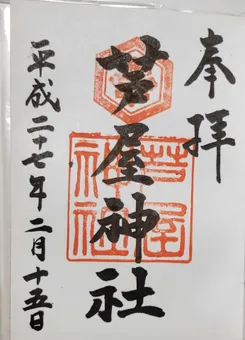 奉拝
芦屋神社
芦屋神社
平成二十七年二月十五日